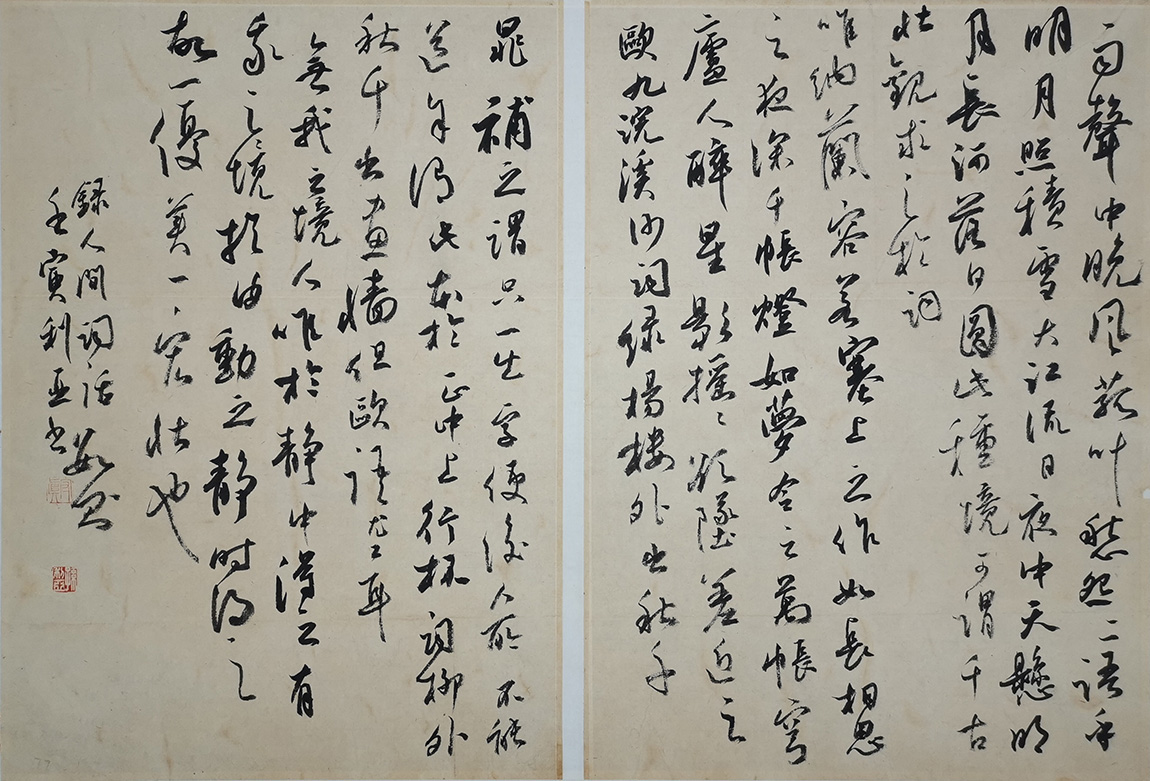 雨聲中晚風菰叶愁怨二語乎
明月照積雪大江流日夜中天懸明
月長河落日圓此種境可謂千古
壯觀求之於詞
唯納蘭容若塞上之作如長相思
之夜深千帳燈如夢令之萬帳穹
廬人醉星影搖〻欲墜差近之
歐九浣溪沙詞綠楊樓外出秋千
晁補之謂只一出字便後人所不能
道余謂此本於正中上行杯詞柳外
秋千出畫墻但歐語尤工耳
無我之境人唯於靜中得之有
我之境於由動之靜時得之
故一優美一宏壯也
錄人間詞話數則
壬寅利亞書